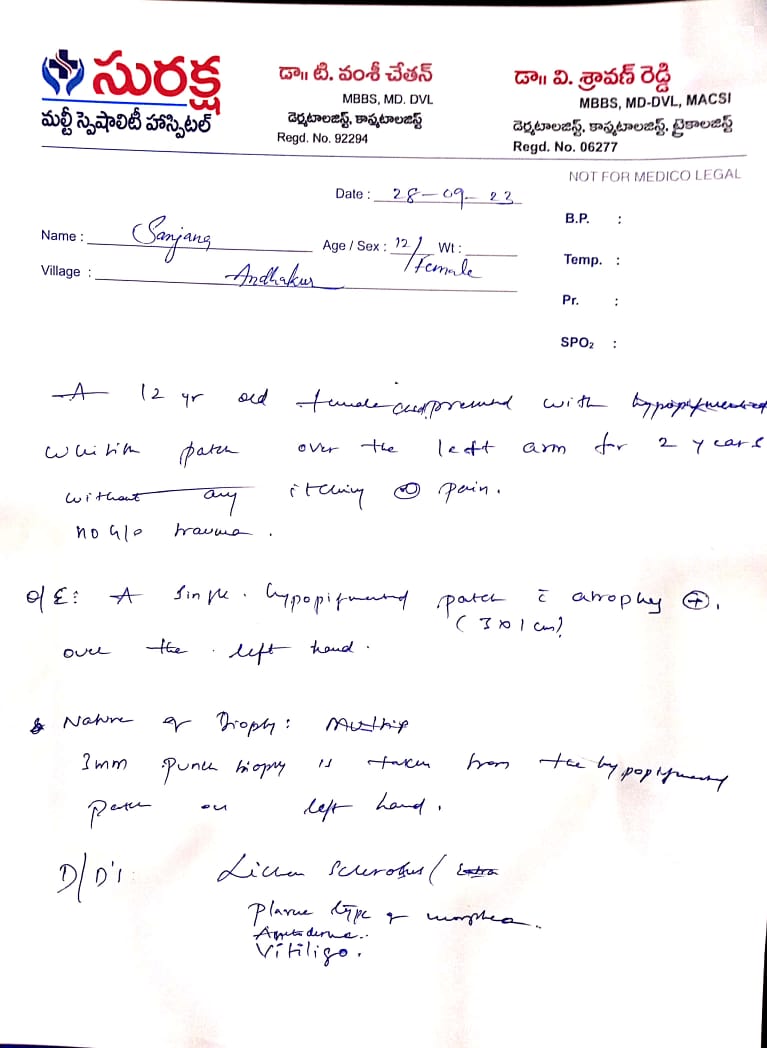 సురక్ష
మల్టీ స్పెషాలిటీ హాస్పిటల్
డా॥ టి. వంశీ చేతన్
MBBS, MD. DVL
డెర్మటాలజిస్ట్, కాస్మటాలజిస్ట్
Regd. No. 92294
డా॥ వి. శ్రావణ్ రెడ్డి
MBBS, MD-DVL, MACSI
డెర్మటాలజిస్ట్, కాస్మటాలజిస్ట్, ట్రైకాలజిస్ట్
Regd. No. 06277
NOT FOR MEDICO LEGAL
Date : 28-09-23
B.P. :
Name : Sanjana Age / Sex : 12/Female Wt :
Temp. :
Village : Andhakur
Pr. :
SPO₂ :
A 12 yr old female presented with
whitish patch over the left arm for 2 years
without any itching pain.
no H/o trauma.
O/E: A single hypopigmented patch c̄ atrophy ⊕.
(3 x 1 cm)
over the left hand.
Nature of Biopsy:
3mm punch biopsy is taken from the hypopigmented
patch on left hand.
D/D's: Lichen Sclerosus /
Plaque type of morphea.
Vitiligo.